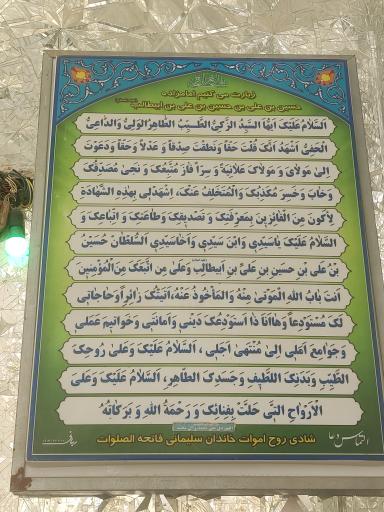 زیارت می کنیم امامزاده
حسین بن علی بن حسین بن علی بن ابیطالب
اَلسَّلامُ عَلَیْکَ اَیُّهَا السَّیِّدُ الزَّکِیُّ الطَّیِّبُ الطّاهِرُ الْوَلِیُّ وَالدّاعِیُّ
الْحَفِیُّ اَشْهَدُ اَنَّکَ قُلْتَ حَقّاً وَنَطَقْتَ صِدْقاً وَ عَدْلاً وَحَقّاً وَدَعَوْتَ
اِلیٰ مَوْلایَ وَ مَوْلاکَ عَلانِیَةً وَ سِرّاً فازَ مُتَّبِعُکَ وَ نَجیٰ مُصَدِّقُکَ
وَخابَ وَخَسِرَ مُکَذِّبُکَ وَالْمُتَخَلِّفُ عَنْکَ، اِشْهَدْلی بِهٰذِهِ الشَّهادَةِ
لِاَکُونَ مِنَ الْفائِزینَ بِمَعْرِفَتِکَ وَ تَصْدیقِکَ وَطاعَتِکَ وَ اتِّباعِکَ وَ
السَّلامُ عَلَیْکَ یاسَیِّدی وَابْنَ سَیِّدی وَ اَخاسَیِّدی اَلسُّلْطانَ حُسَیْنَ
بْنَ عَلی بنِ حسین بنِ علیِّ بنِ ابیطالِبِّ وَعَلیٰ مَنِ اتَّبَعَکَ مِنَ الْمُؤْمِنینَ
اَنْتَ بابُ اللهِ الْمُؤْتیٰ مِنْهُ وَالْمَأْخُوذُ عَنْهُ، اَتَیْتُکَ زائِراً وَحاجاتی
لَکَ مُسْتَوْدِعاً وَهااَنَا ذا اَسْتَوْدِعُکَ دینی وَاَمانَتی وَ خَواتیمَ عَمَلی
وَ جَوامِعَ اَمَلی اِلیٰ مُنْتَهیٰ اَجَلی ، اَلسَّلامُ عَلَیْکَ وَعَلیٰ رُوحِکَ
الطَّیِّبِ وَبَدَنِکَ اللَّطیفِ وَجَسَدِکَ الطّاهِرِ، اَلسَّلامُ عَلَیْکَ وَعَلَی
الْاَرْواحِ الَّتی حَلَّتْ بِفِنائِکَ وَ رَحْمَةُ اللهِ وَ بَرَکاتُهُ
شادی روح اموات خاندان سلیمانی فاتحه الصلوات
التماس دعا